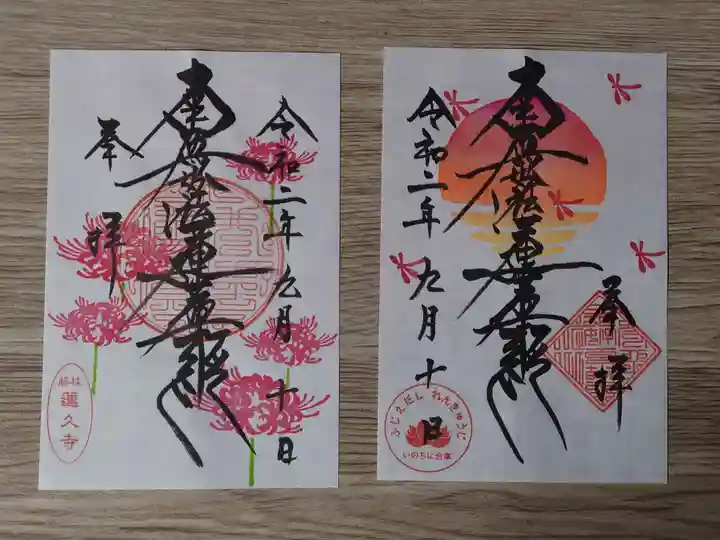 奉拝
南無妙法蓮華経
令和二年九月十日
藤枝
蓮久寺
令和二年九月十日
南無妙法蓮華経
奉拝
ふじえだし れんきゅうじ
いのちに合掌